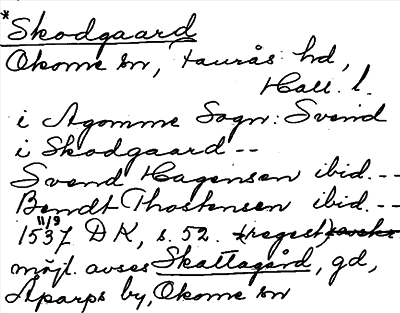 *Skodgaard
Okome sn, Faurås hd,
Hall. l.
i Agomme Sogn: Svend
i Skodgaard --
Svend Hagensen ibid. --
Bendt Thostensen ibid. --
11/9
1537 DK, s. 52. (regest)
möjl. avses Skattagård, gd,
Aparps by, Okome sn